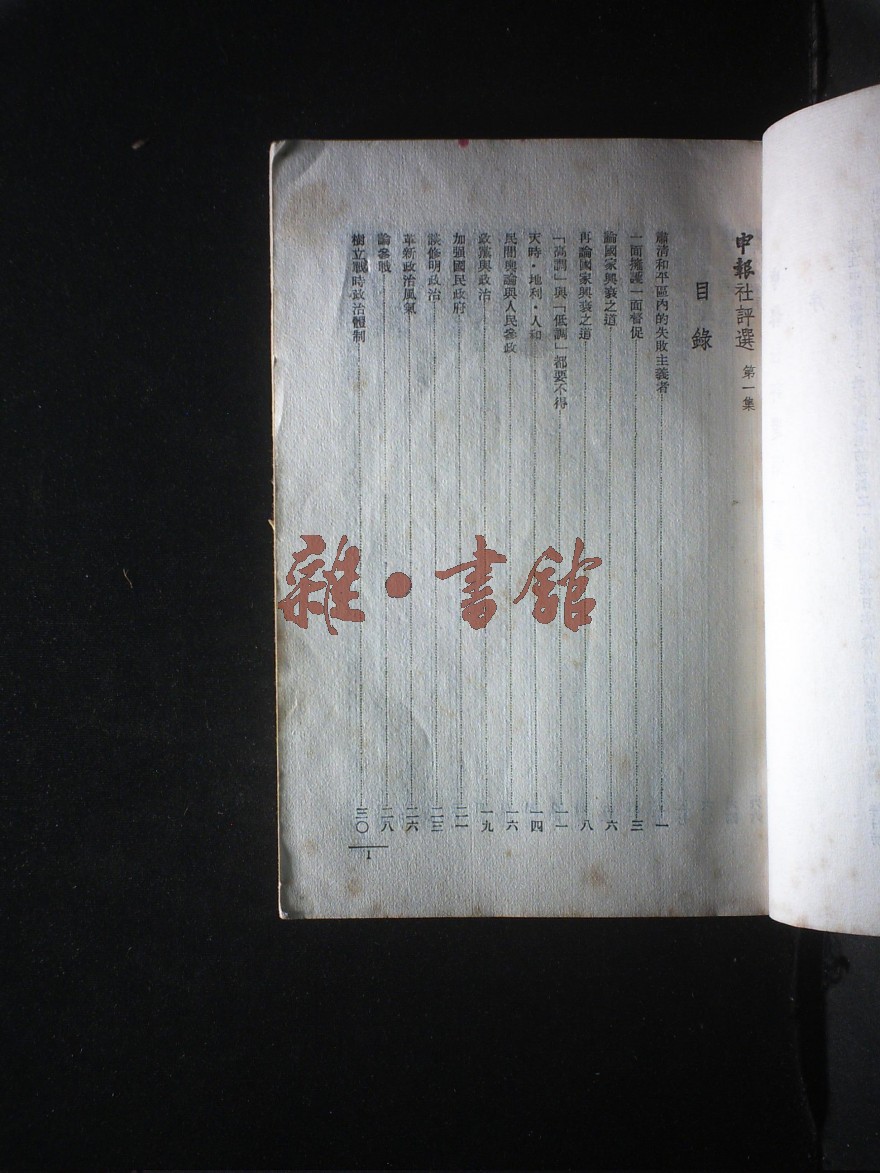 申報社評選 第一集
目錄
肅清和平區內的失敗主義者 一
一面擁護一面督促 三
論國家興衰之道 六
再論國家興衰之道 八
「高調」與「低調」都要不得 一一
天時·地利·人和 一四
民間輿論與人民參政 一六
政黨與政治 一九
加强國民政府 二一
談修明政治 二三
革新政治風氣 二六
論參戰 二八
樹立戰時政治體制 三〇
1
雜·書館